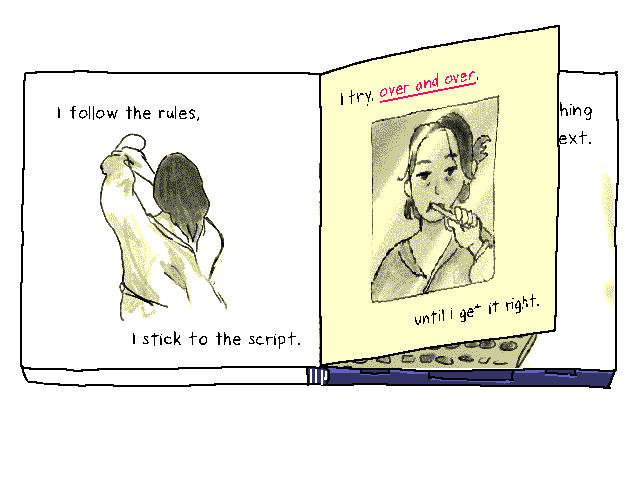 I follow the rules,
I stick to the script.
I try, over and over,
until I get it right.
hing
ext.